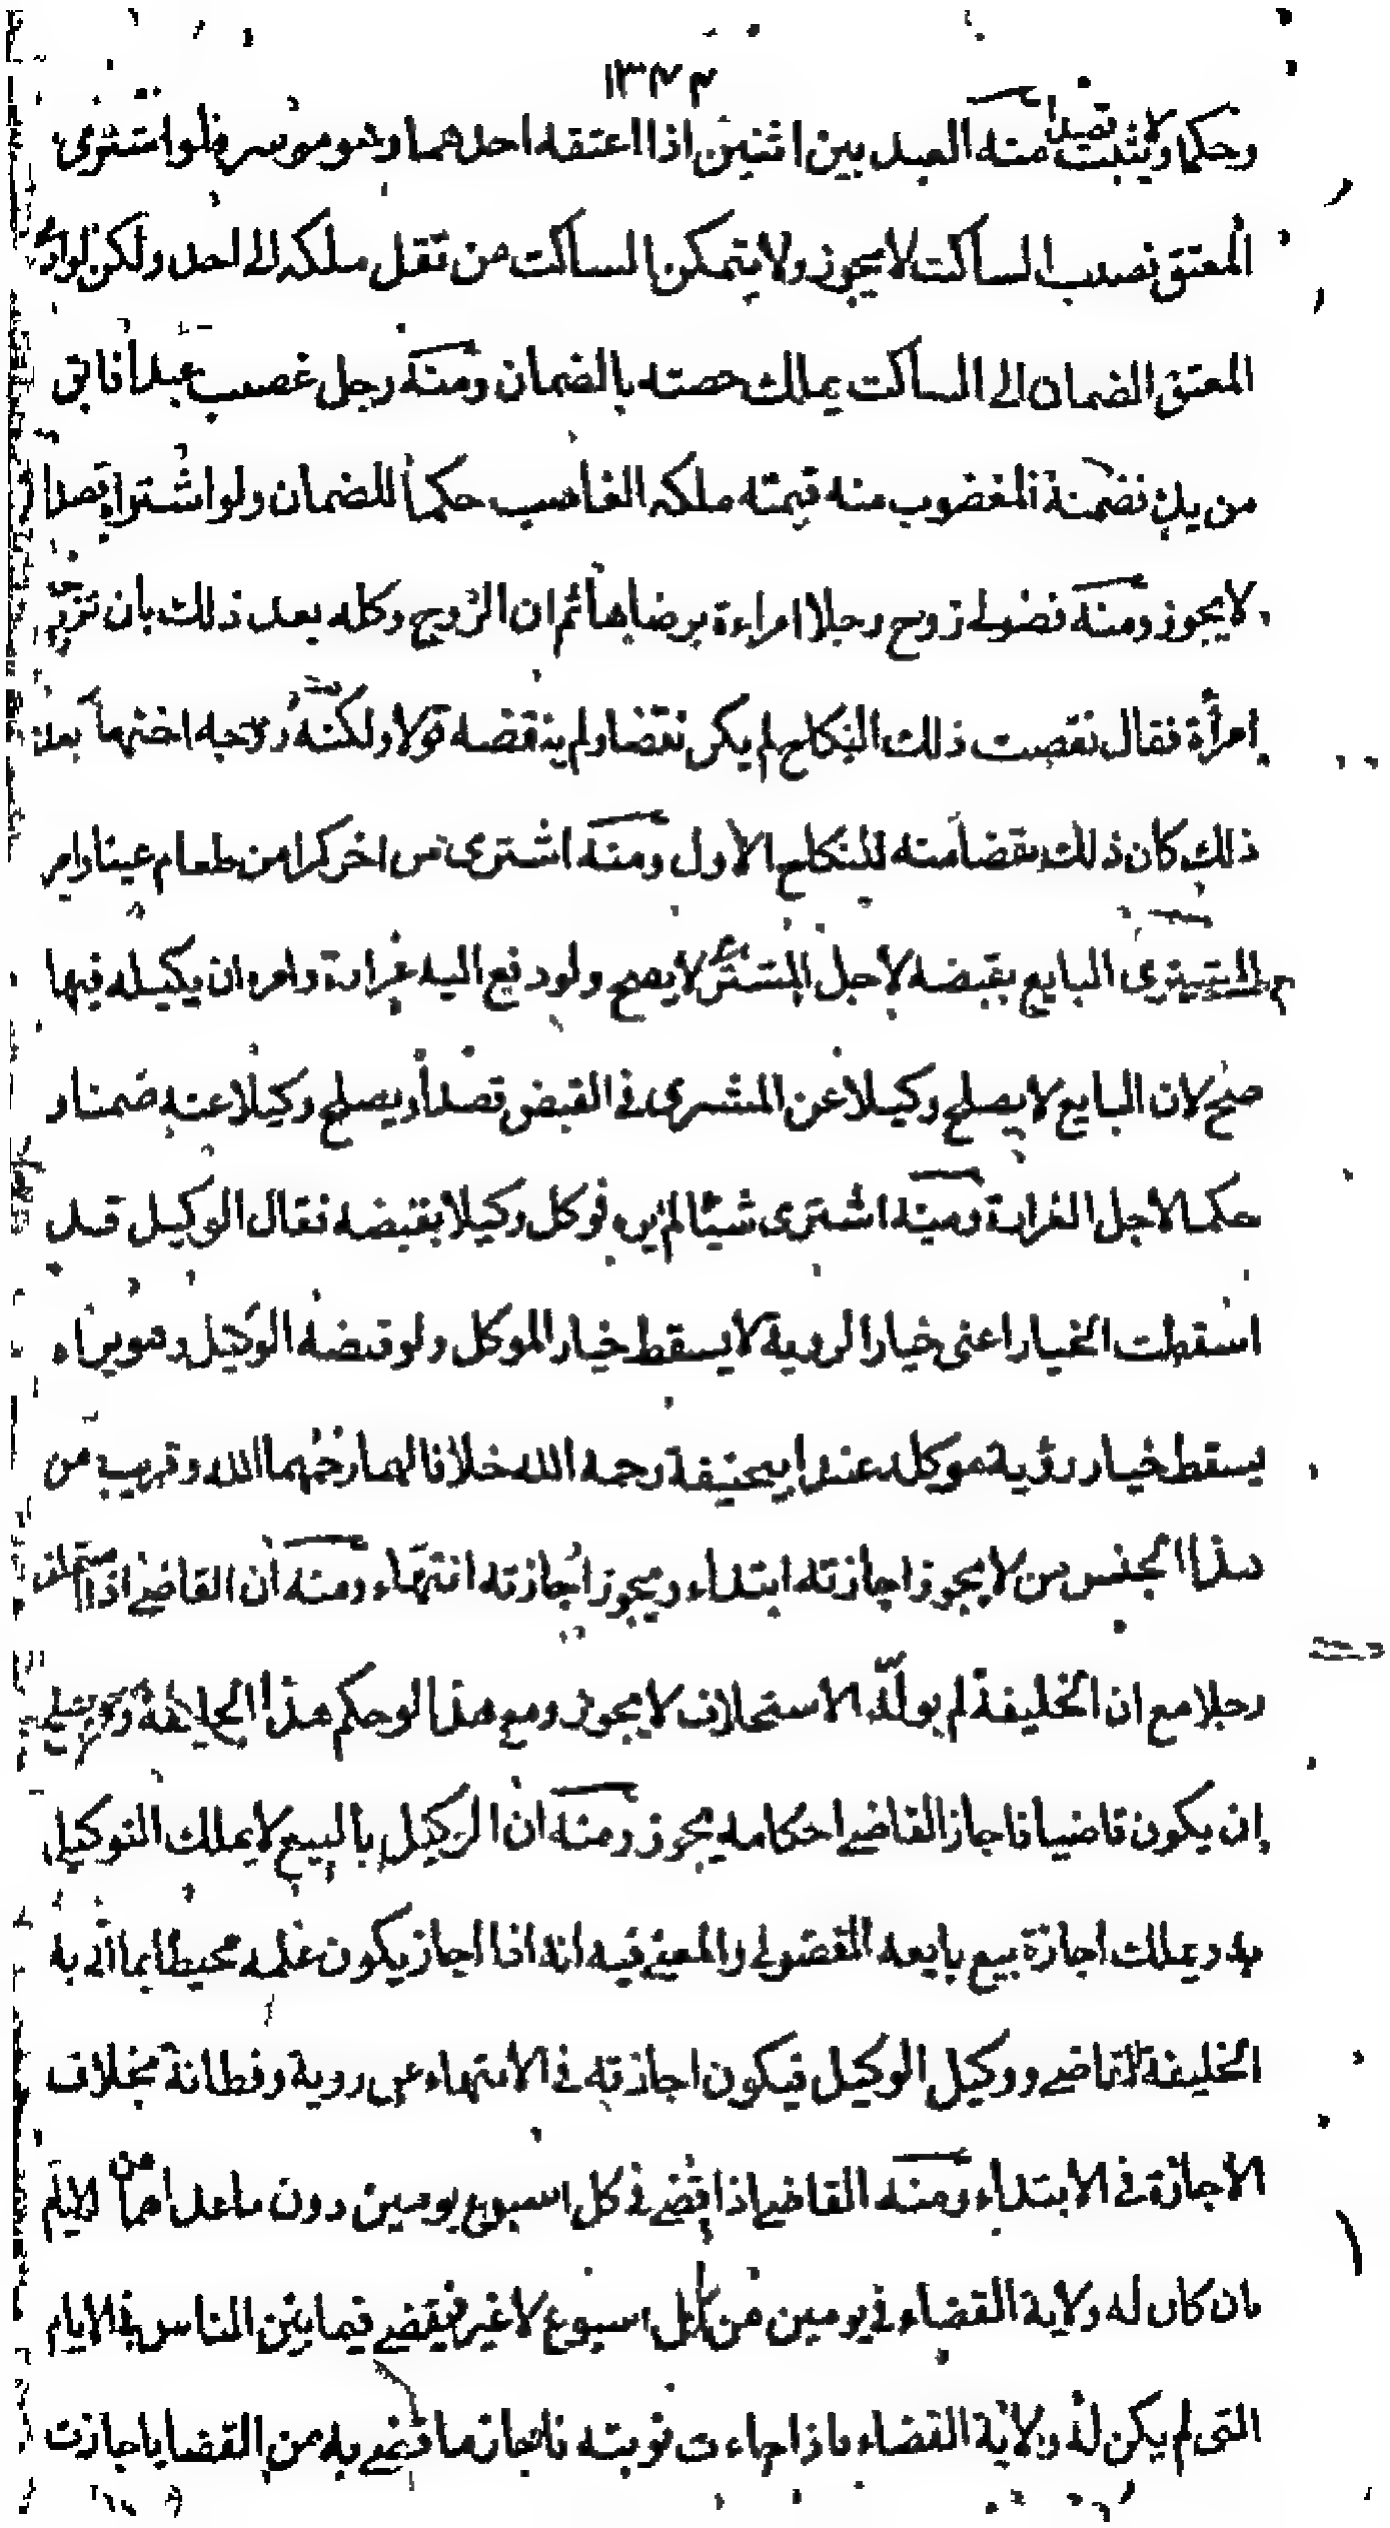 ١٣٤٤
وحكما ولا يثبت قصدا منه العبد بين اثنين اذا اعتقه احدهما وهو موسر فلو اشترى
المعتق نصيب الساكت لا يجوز ولا يتمكن الساكت من نقل ملكه الى احد ولكن لو ادى
المعتق الضمان الى الساكت يملك حصته بالضمان ومنه رجل غصب عبدا فابق
من يده فضمنه المغضوب منه قيمته ملكه الغاصب حكما للضمان ولو اشتراه قصدا
لا يجوز ومنه فضولى زوج رجلا امراءة برضاها ثم ان الزوج وكله بعد ذلك بان تزوجه
امرأة فقال نقضت ذلك النكاح لم يكن نقضا ولم ينقضه قولا ولكنه زوجه اختها بعد
ذلك كان ذلك نقضا منه للنكاح الاول ومنه اشترى من اخر كرا من طعام عينا وامر
المشترى البايع بقبضه لاجل المشترى لا يصح ولو دفع اليه غرارة وامره ان يكيله فيها
صح لان البايع لا يصلح وكيلا عن المشرى فى القبض قصدا ويصلح وكيلا عنه ضمنا و
حكما لاجل الغرارة ومنه اشترى شيئا لم يره فوكل وكيلا بقبضه فقال الوكيل قد
اسقطت الخيار اعنى خيار الروية لا يسقط خيار الموكل ولو قبضه الوكيل وهو يراه
يسقط خيار رؤية موكله عند ابيحنيفة رحمه الله خلافا لهما رحمهما الله وقريب من
هذا الجنس من لا يجوز اجازته ابتداء ويجوز اجازته انتهاء ومنه ان القاضى اذا استخلف
رجلا مع ان الخليفة لم يول له الاستخلاف لا يجوز ومع هذا لو حكم هذا الخليفة وهو يصلح
ان يكون قاضيا فاجاز القاضى احكامه يجوز ومنه ان الوكيل بالبيع لا يملك التوكيل
به ويملك اجازة بيع بايعه الفضولى والمعنى فيه انه اذا اجاز يكون علمه محيطا بما اتى به
الخليفة القاضى ووكيل الوكيل فيكون اجازته فى الانتهاء عن روية وفطانة بخلاف
الاجازة فى الابتداء ومنه القاضى اذا قضى فى كل اسبوع يومين دون ما عداهما من الايام
بان كان له ولاية القضاء فى يومين من كل اسبوع لا غير فيقضى فيما بين الناس فى الايام
التى لم يكن له ولاية القضاء فاذا جاءت نوبته فاجاز ما قضى به من القضايا جازت